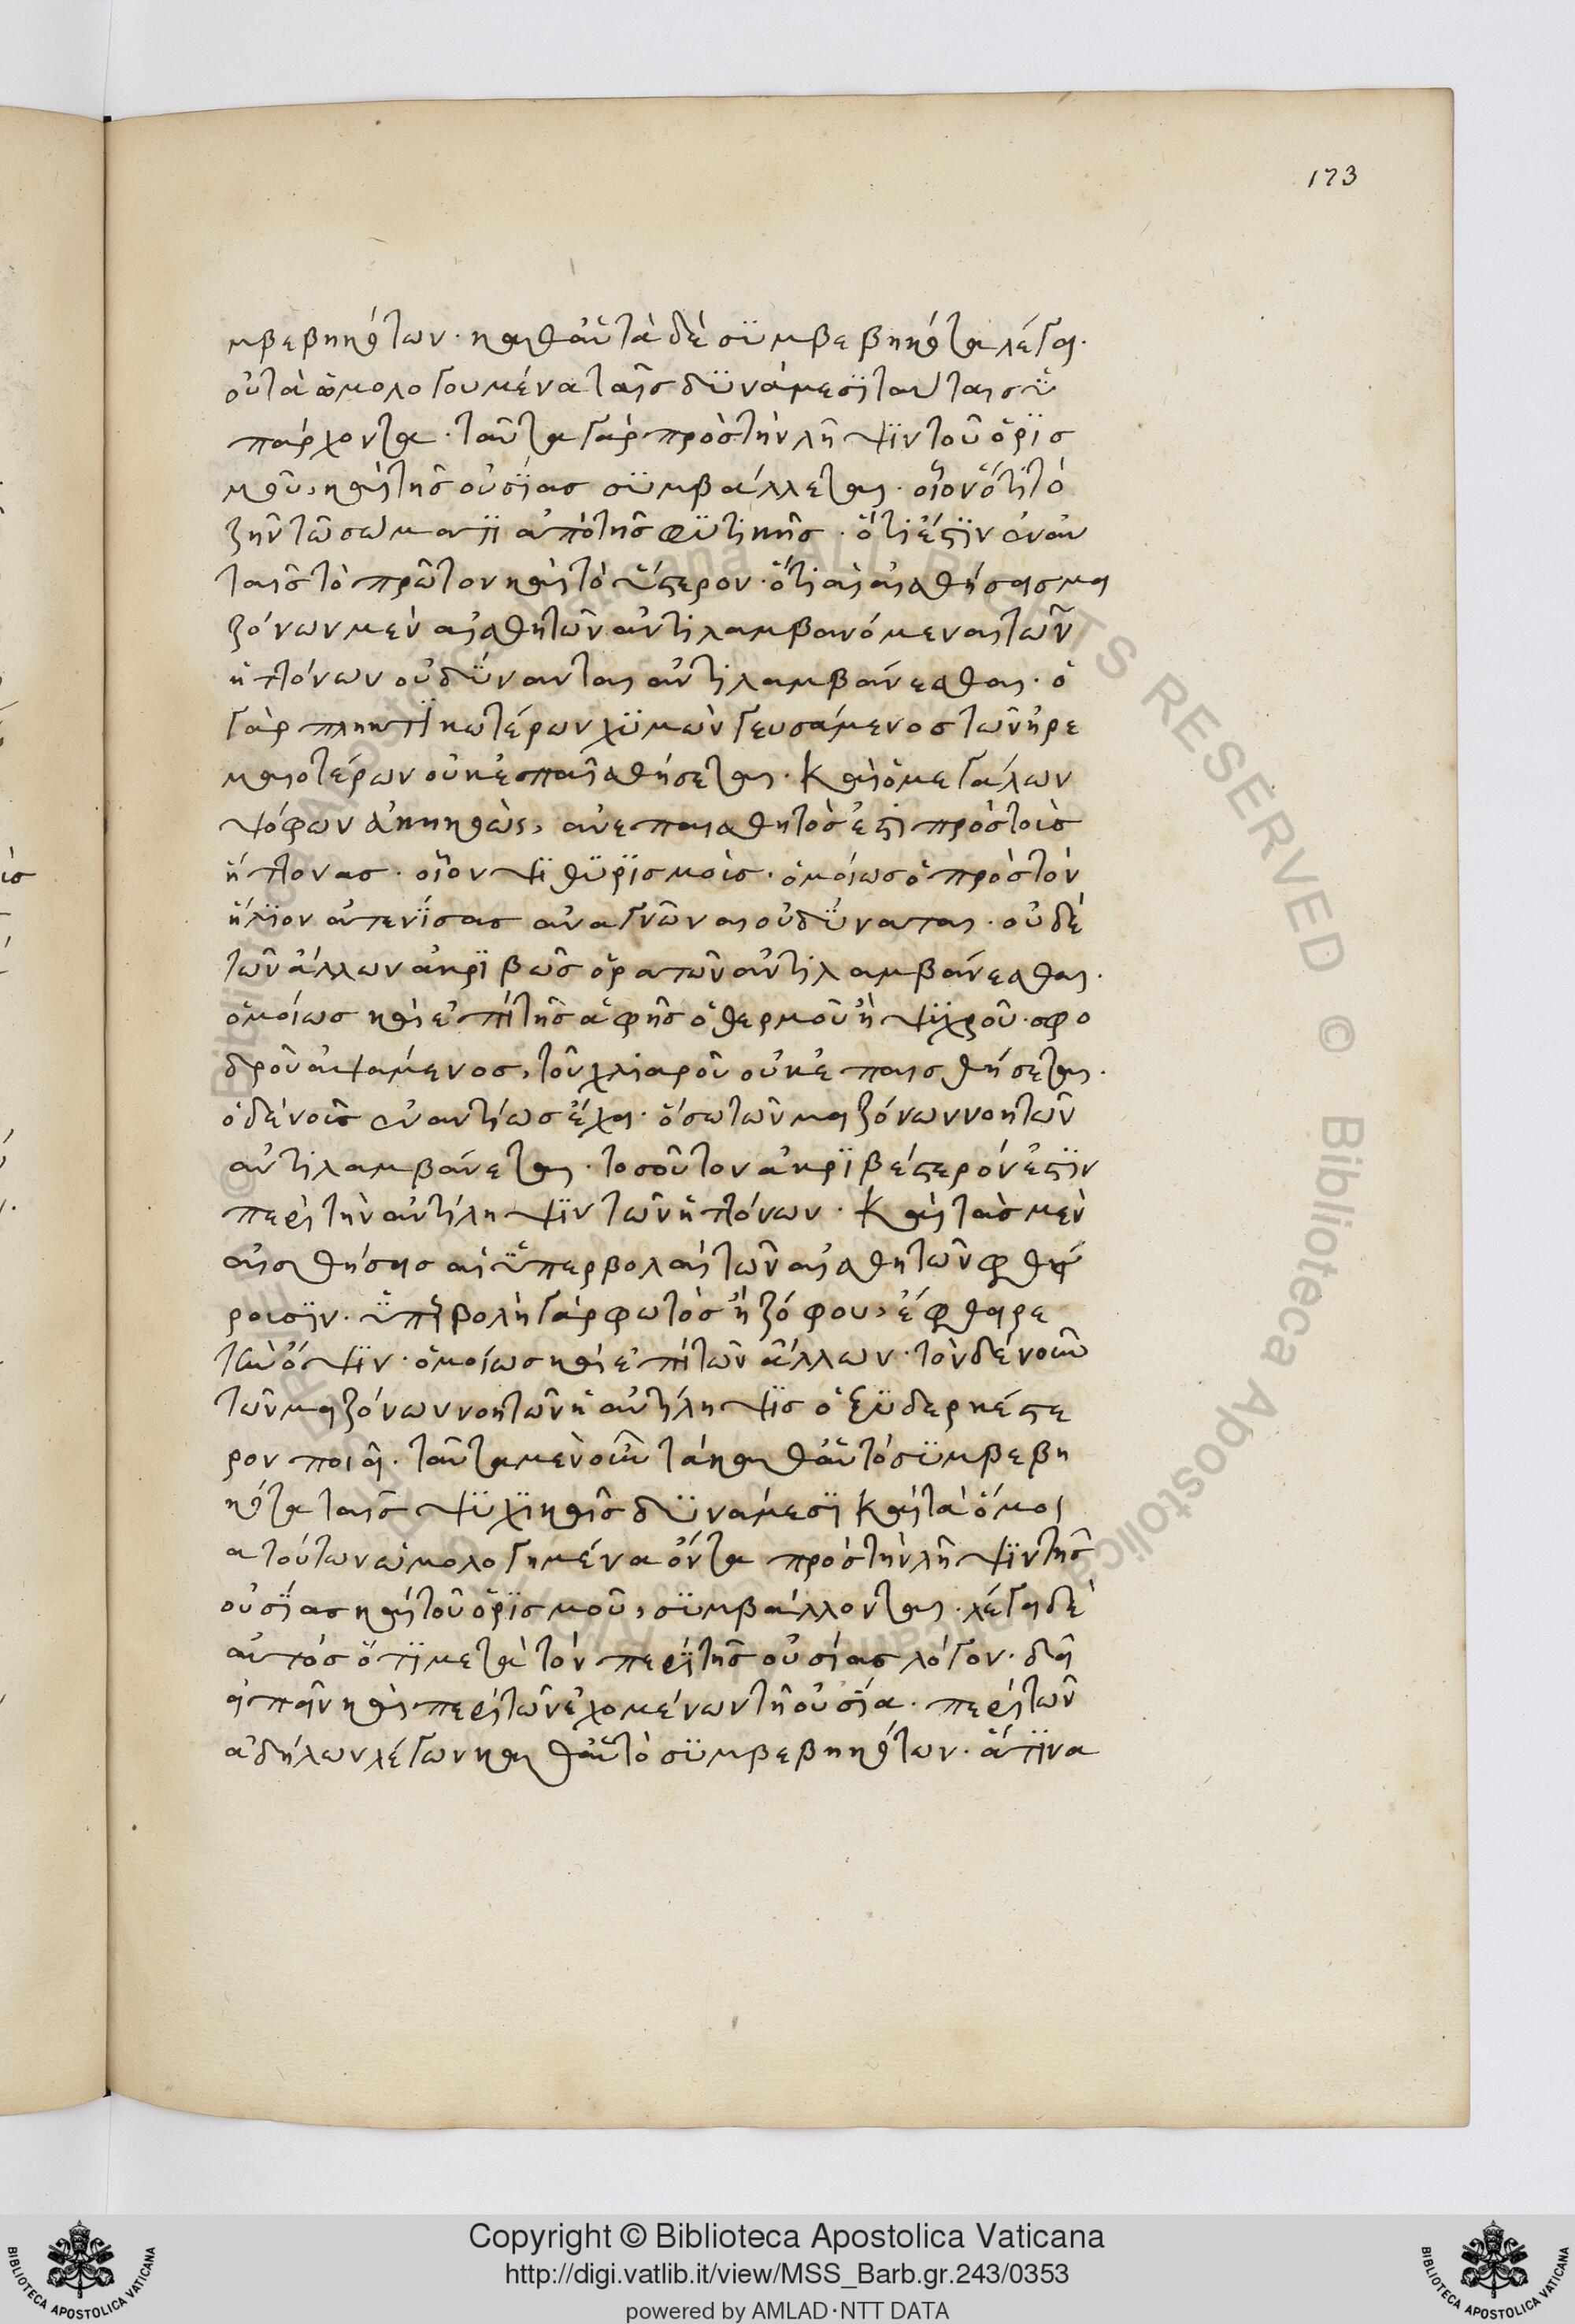 173
μβεβηκότων· καθ' αὑτὰ δὲ συμβεβηκότα λέγει·
οὐ τὰ ὁμολογουμένα ταῖς δυνάμεσι ταύταις ὑ
πάρχοντα· ταῦτα γὰρ πρὸς τὴν λῆψιν τοῦ ὁρισ
μοῦ, καὶ τῆς οὐσίας συμβάλλεται· οἷον ὅτι τὸ
ζῆν τῶ σώματι ἀπὸ τῆς φυτικῆς· ὅτι ἐστὶν ἐν αὐ
ταῖς τὸ πρῶτον καὶ τὸ ὕστερον· ὅτι αἱ αἰσθήσεις μει
ζόνων μὲν αἰσθητῶν ἀντιλαμβανόμεναι τῶν
ἡττόνων οὐ δύνανται ἀντιλαμβάνεσθαι· ὁ
γὰρ πληκτικωτέρων χυμῶν γευσάμενος τῶν ἠρε
μαιοτέρων οὐκ ἐπαισθήσεται· Καὶ ὁ μεγάλων
ψόφων ἀκηκοὼς, ἀνεπαισθητός ἐστι πρὸς τοὺς
ἥττονας· οἷον ψιθυρισμοὺς· ὁμοίως ὁ πρὸς τὸν
ἥλιον ἀτενίσας ἀναγνῶναι οὐ δύναται· οὐδὲ
τῶν ἄλλων ἀκριβῶς ὁρατῶν ἀντιλαμβάνεσθαι·
ὁμοίως καὶ ἐπὶ τῆς ἁφῆς ὁ θερμοῦ ἢ ψυχροῦ· σφο
δροῦ ἁψάμενος, τοῦ χλιαροῦ οὐκ ἐπαισθήσεται·
ὁ δὲ νοῦς ἐναντίως ἔχει· ὅσω τῶν μειζόνων νοητῶν
ἀντιλαμβάνεται· τοσοῦτον ἀκριβέστερόν ἐστιν
περὶ τὴν ἀντίληψιν τῶν ἡττόνων· Καὶ τὰς μὲν
αἰσθήσεις αἱ ὑπερβολαὶ τῶν αἰσθητῶν φθεί
ρουσιν· ὑπερβολὴ γὰρ φωτὸς ἢ ζόφου, ἔφθειρε
τὴν ὄψιν· ὁμοίως καὶ ἐπὶ τῶν ἄλλων· τὸν δὲ νοῦν
τῶν μειζόνων νοητῶν ἡ ἀντίληψις ὀξυδερκέστε
ρον ποιεῖ· ταῦτα μὲν οὖν τὰ καθ' αὑτὸ συμβεβη
κότα ταῖς ψυχικαῖς δυνάμεσι Καὶ τὰ ὅμοι
α τούτων ὡμολογημένα ὄντα πρὸς τὴν λῆψιν τῆς
οὐσίας καὶ τοῦ ὁρισμοῦ, συμβάλλονται· λέγει δὲ
αὐτὸς ὅτι μετὰ τὸν περὶ τῆς οὐσίας λόγον· δεῖ
εἰπεῖν καὶ περὶ τῶν ἐχομένων τῆ οὐσία· περὶ τῶν
ἀδήλων λέγων καθ' αὑτὸ συμβεβηκότων· ἅτινα
Copyright © Biblioteca Apostolica Vaticana
http://digi.vatlib.it/view/MSS_Barb.gr.243/0353
powered by AMLAD·NTT DATA